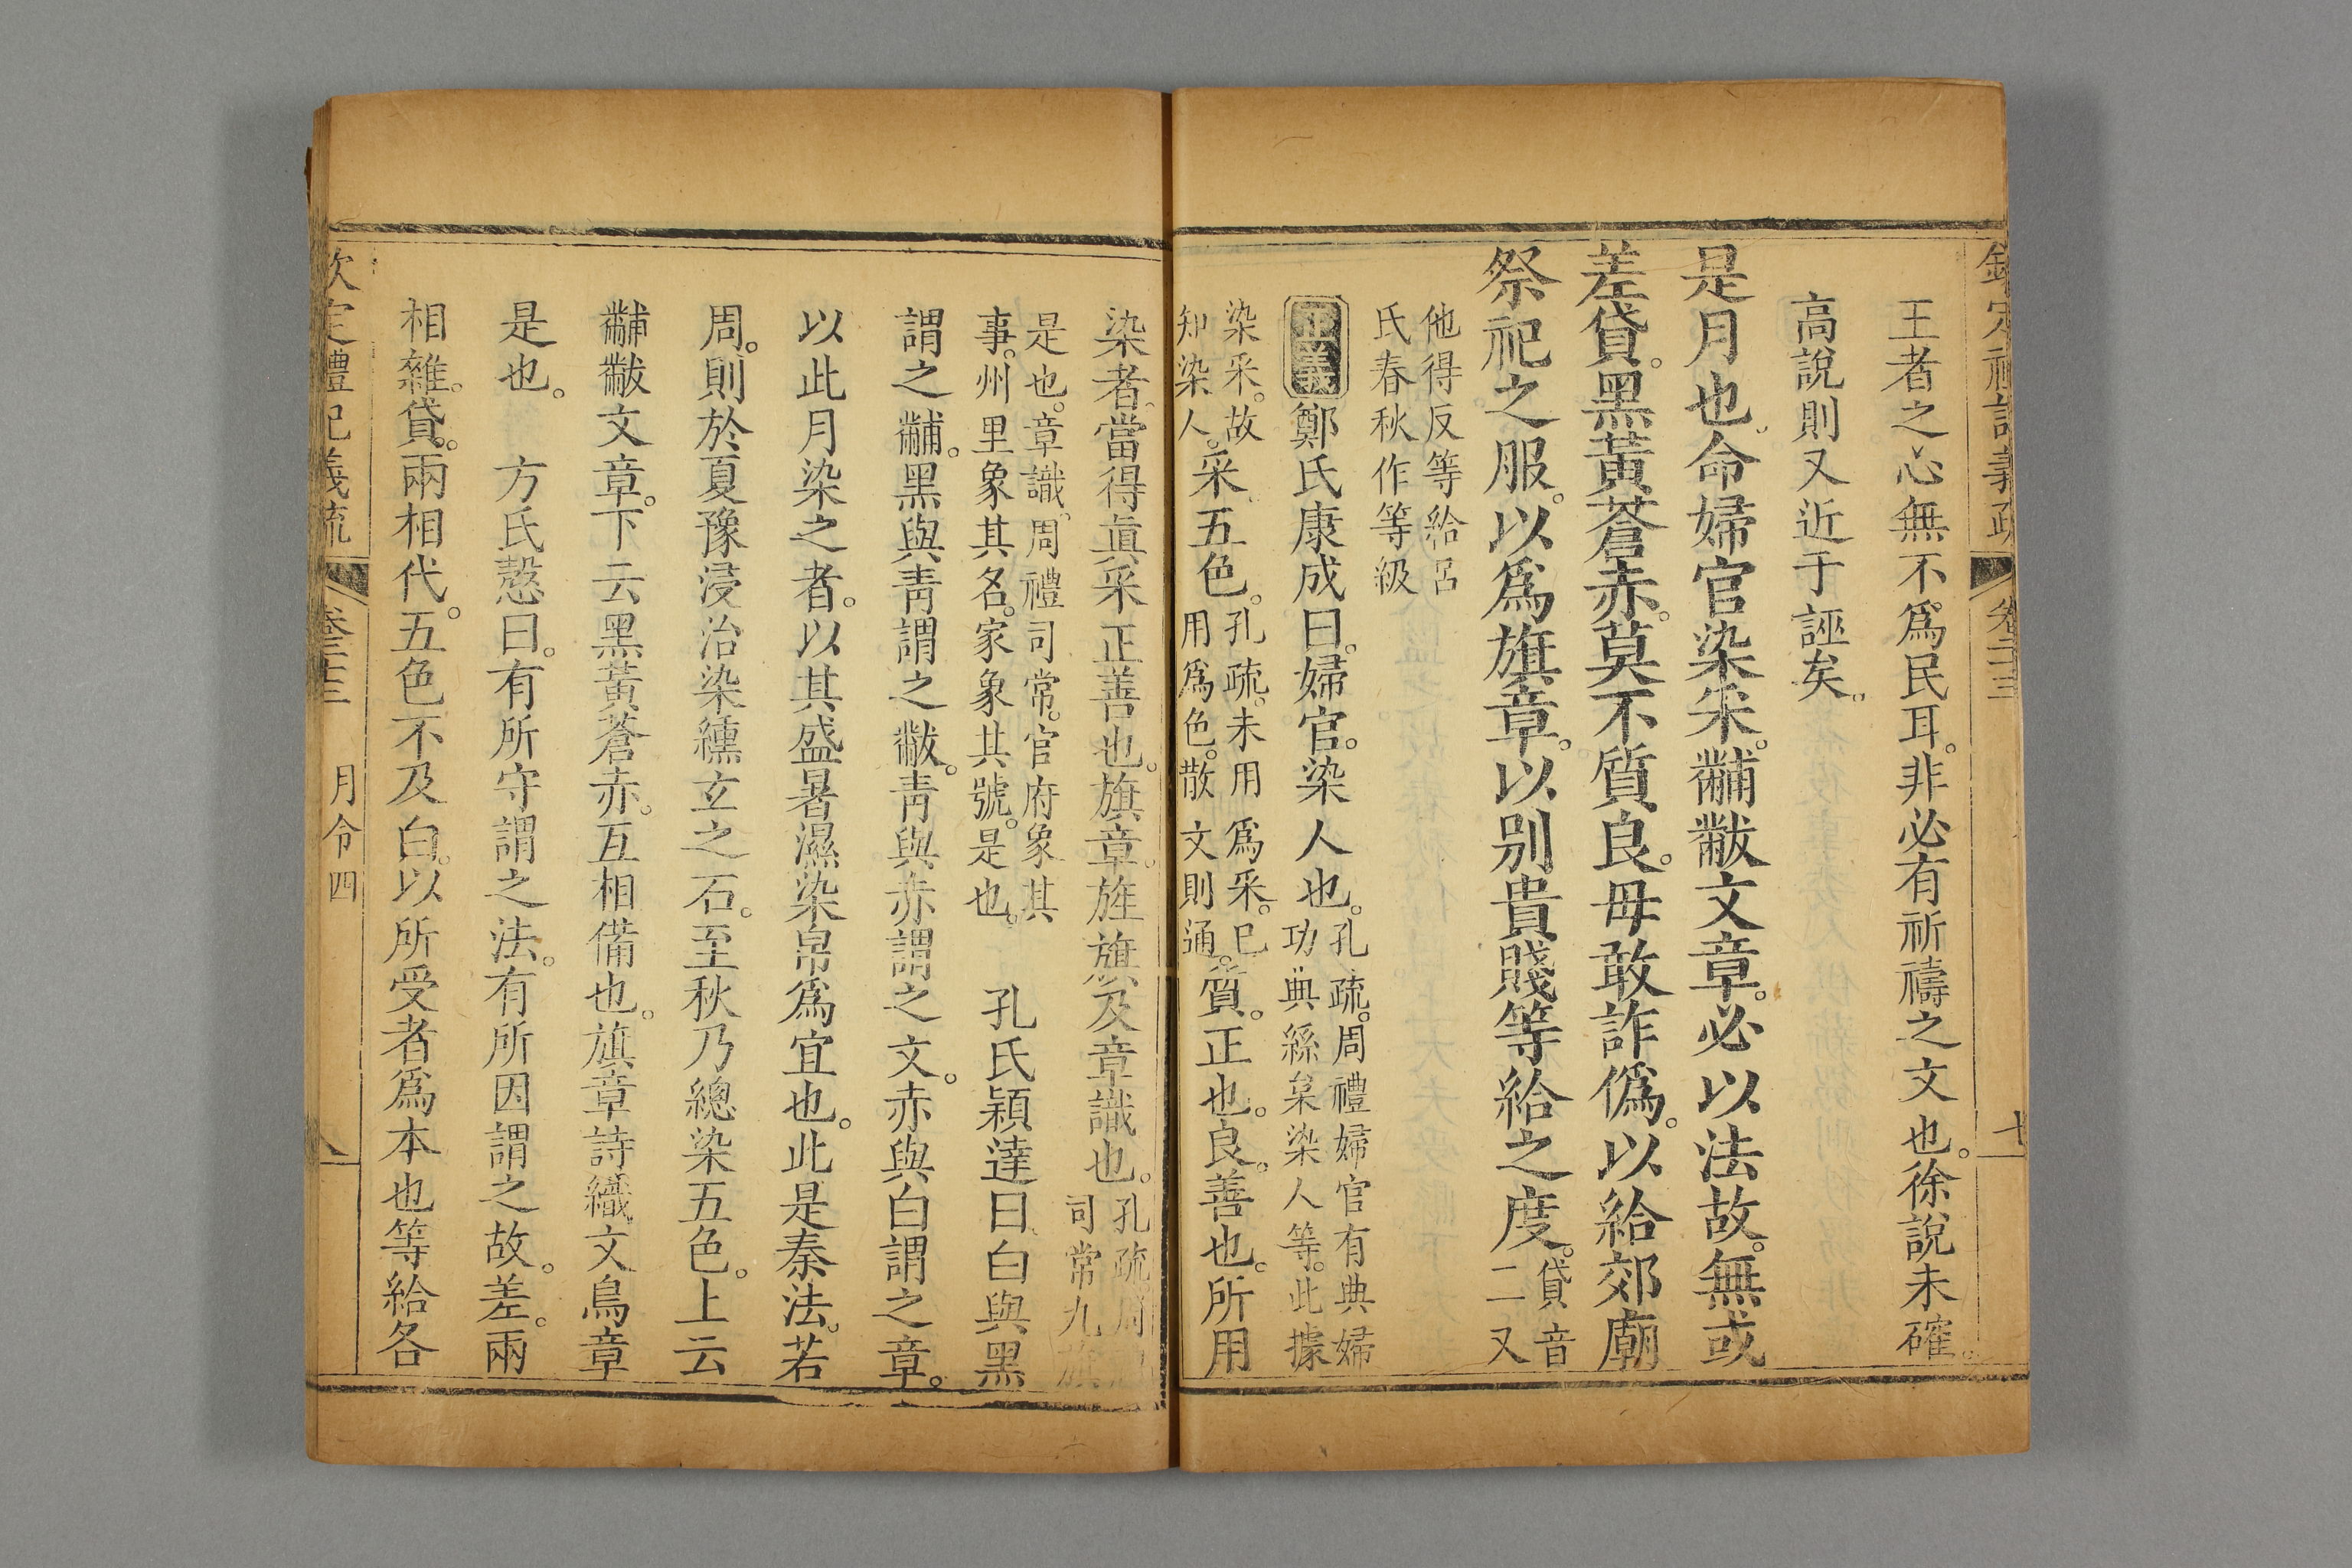 欽定禮記義疏 卷二十三
王者之心無不爲民耳。非必有祈禱之文也。徐說未確。
高說則又近于誣矣。
是月也。命婦官染采。黼黻文章。必以法故。無或
差貸。黑黃蒼赤。莫不質良。毋敢詐僞。以給郊廟
祭祀之服。以爲旗章。以别貴賤等給之度。貸音
二又
他得反等給呂
氏春秋作等級
正義鄭氏康成曰。婦官。染人也。孔疏。周禮婦官有典婦
功典絲枲染人等。此據
染采。故
知染人。采。五色。孔疏。未用爲采。已
用爲色。散文則通。質。正也。良。善也。所用
染者。當得眞采正善也。旗章。旌旗及章識也。孔疏周禮
司常九旗
是也。章識。周禮司常。官府象其
事。州里象其名。家象其號。是也。 孔氏穎達曰。白與黑
謂之黼。黑與靑謂之黻。靑與赤謂之文。赤與白謂之章。
以此月染之者。以其盛暑濕染帛爲宜也。此是秦法。若
周。則於夏豫浸治染纁玄之石。至秋乃總染五色。上云
黼黻文章。下云黑黃蒼赤。互相備也。旗章詩織文鳥章
是也。 方氏慤曰。有所守謂之法。有所因謂之故。差。兩
相雜。貸。兩相代。五色不及白。以所受者爲本也等給各
欽定禮記義疏 卷二十三 月令四